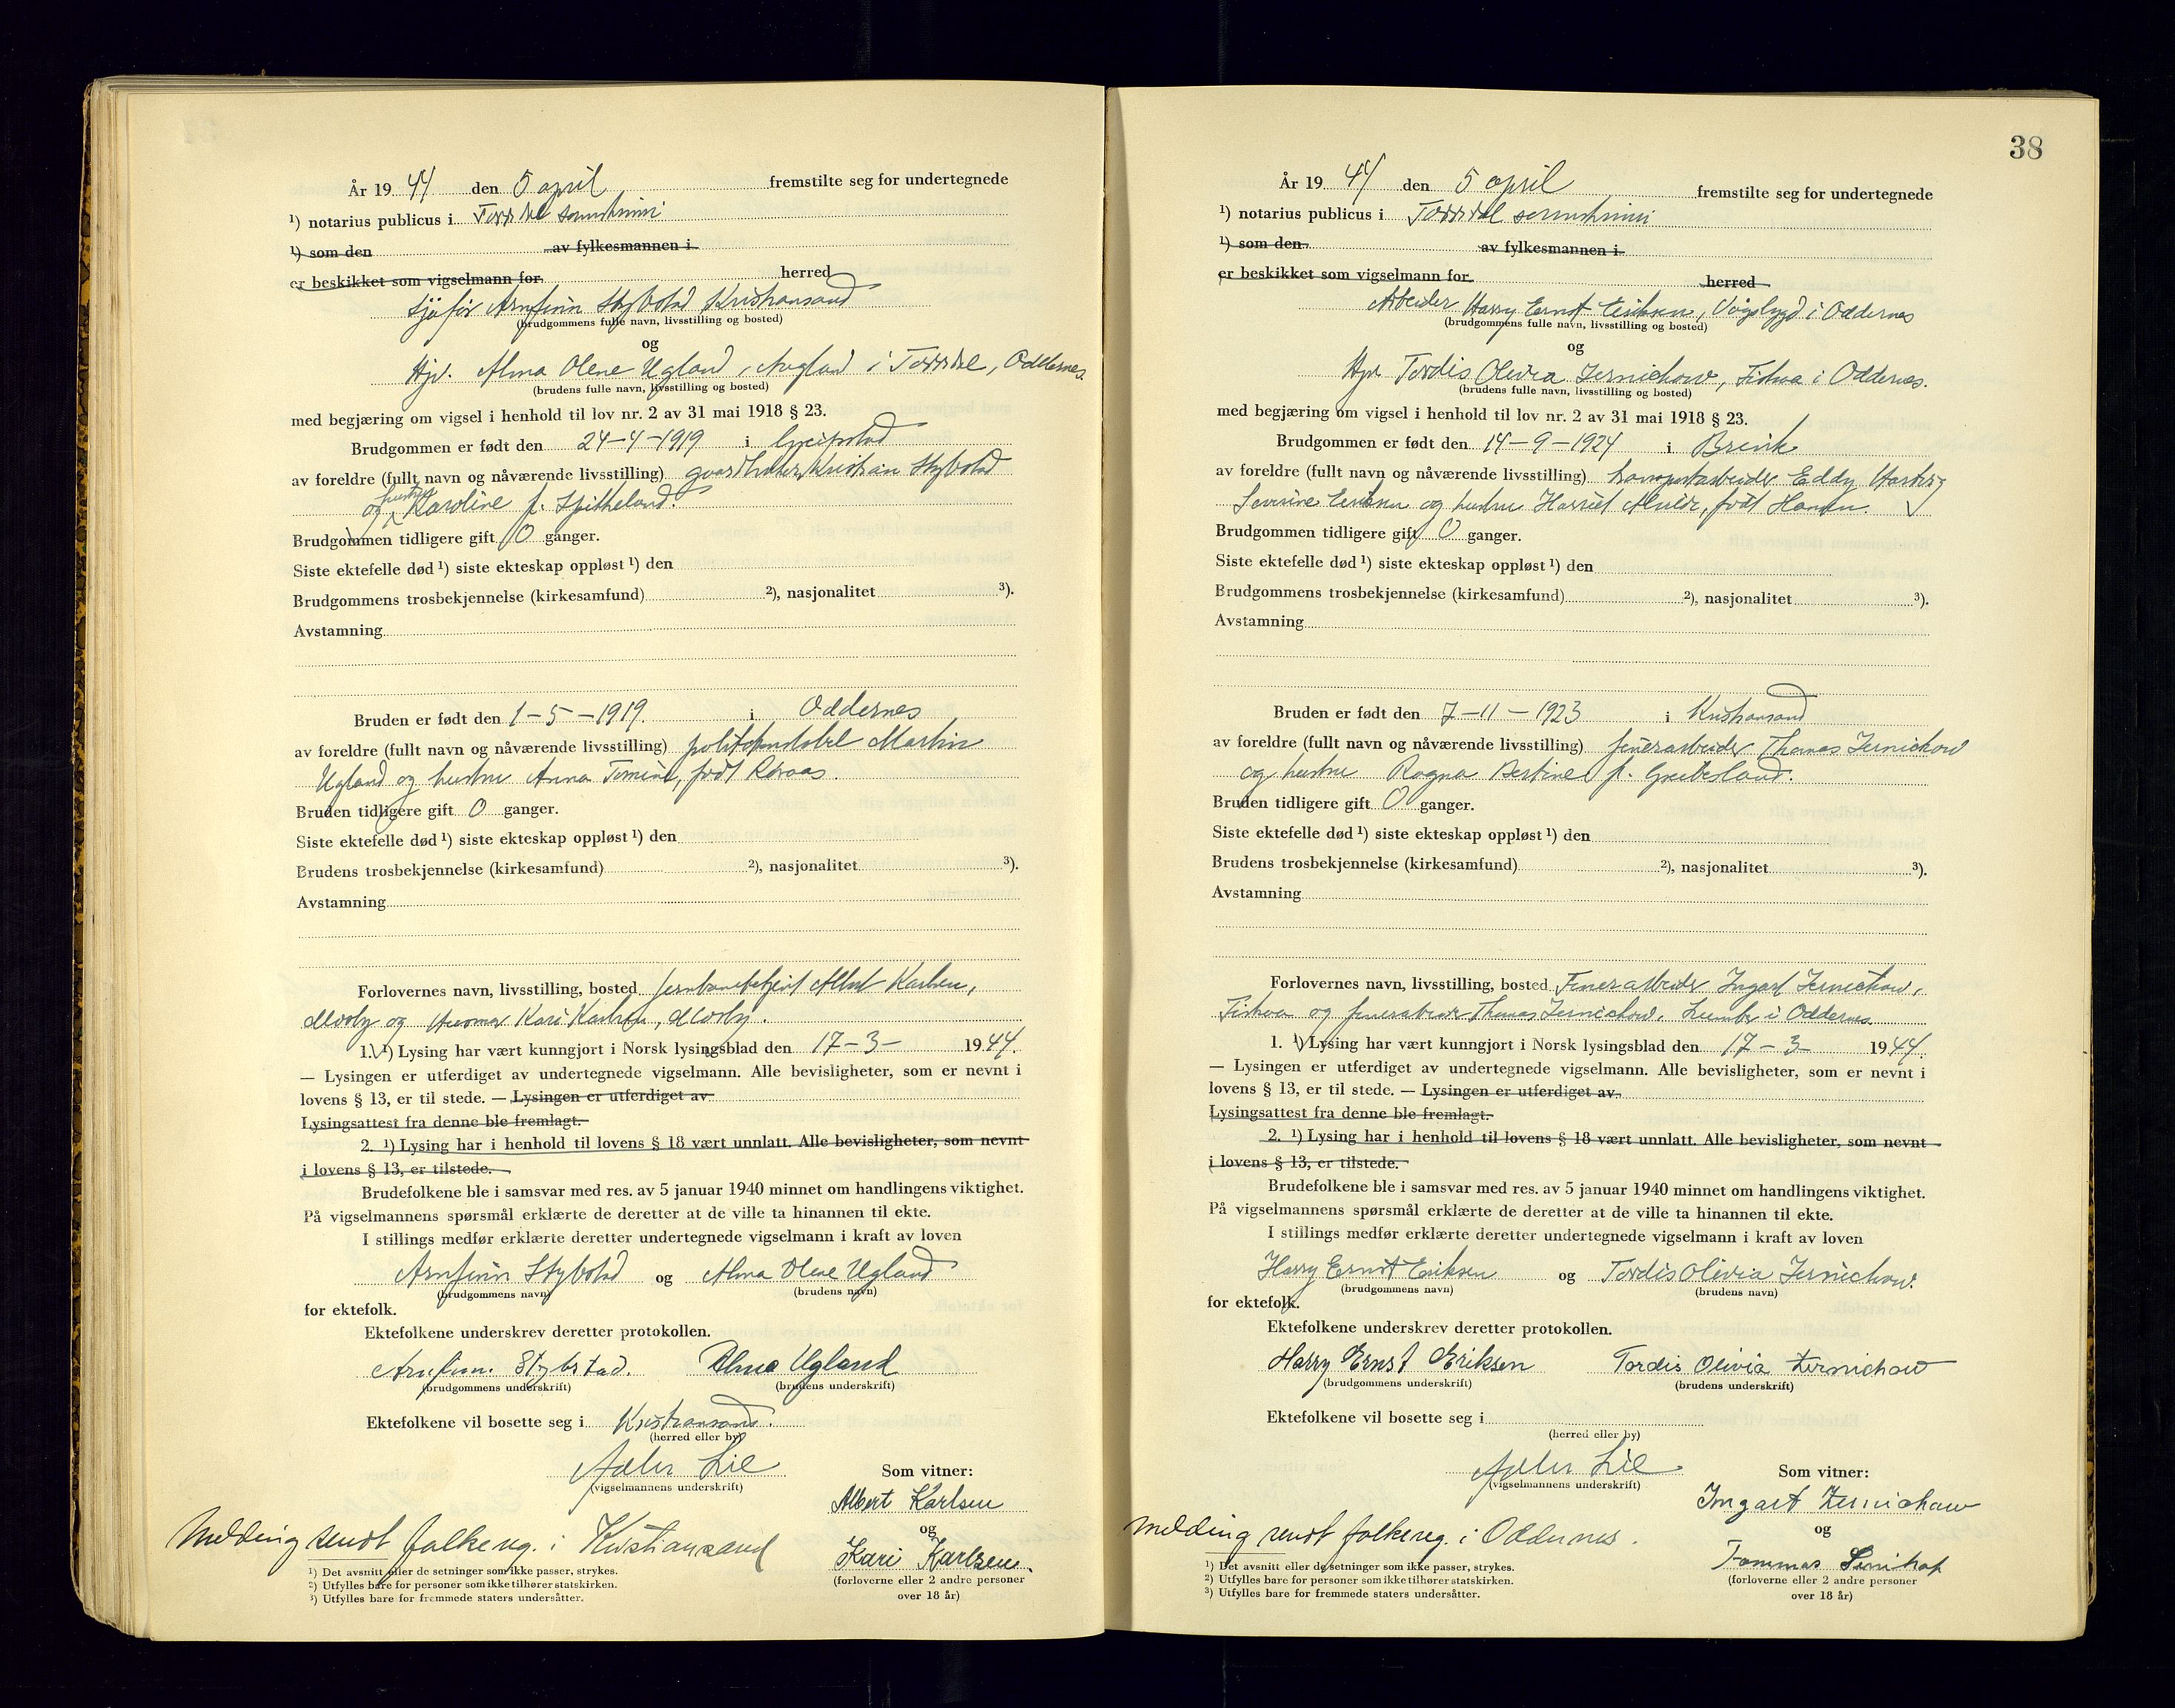 År 19 44 den 5 april fremstilte seg for undertegnede
¹) notarius publicus i Torridal
¹) som den av fylkesmannen i
er beskikket som vigselmann for herred
Sjåfør Arnfinn Stybstad Kristiansand
(brudgommens fulle navn, livsstilling og bosted)
og
Hjv. Alma Olene Ugland, Augland i Torridal, Oddernes
(brudens fulle navn, livsstilling og bosted)
med begjæring om vigsel i henhold til lov nr. 2 av 31 mai 1918 § 23.
Brudgommen er født den 24-4-1919 i
av foreldre (fullt navn og nåværende livsstilling) gaardbruker Kristian Stybstad
og hustru Karoline f.
Brudgommen tidligere gift 0 ganger.
Siste ektefelle død ¹) siste ekteskap oppløst ¹) den
Brudgommens trosbekjennelse (kirkesamfund) ²), nasjonalitet ³).
Avstamning
Bruden er født den 1-5-1919. i Oddernes
av foreldre (fullt navn og nåværende livsstilling) politikonstabel Martin
Ugland og hustru Anna Tomine, født
Bruden tidligere gift 0 ganger.
Siste ektefelle død ¹) siste ekteskap oppløst ¹) den
Brudens trosbekjennelse (kirkesamfund) ²), nasjonalitet ³).
Avstamning
Forlovernes navn, livsstilling, bosted jernbanebetjent Albert Karlsen,
Mosby og Kari Karlsen, Mosby.
1. ¹) Lysing har vært kunngjort i Norsk lysingsblad den 17-3- 19 44.
— Lysingen er utferdiget av undertegnede vigselmann. Alle bevisligheter, som er nevnt i
lovens § 13, er til stede. — Lysingen er utferdiget av
Lysingsattest fra denne ble fremlagt.
2. ¹) Lysing har i henhold til lovens § 18 vært unnlatt. Alle bevisligheter, som nevnt
i lovens § 13, er tilstede.
Brudefolkene ble i samsvar med res. av 5 januar 1940 minnet om handlingens viktighet.
På vigselmannens spørsmål erklærte de deretter at de ville ta hinannen til ekte.
I stillings medfør erklærte deretter undertegnede vigselmann i kraft av loven
Arnfinn Stybstad og Alma Olene Ugland
(brudgommens navn) (brudens navn)
for ektefolk.
Ektefolkene underskrev deretter protokollen.
Arnfinn. Stybstad. Alma Ugland
(brudgommens underskrift) (brudens underskrift)
Ektefolkene vil bosette seg i Kristiansand.
(herred eller by)
Adler Lie
(vigselmannens underskrift)
Som vitner:
Albert Karlsen
og
Kari Karlsen
(forloverne eller 2 andre personer
over 18 år)
Melding sendt folkereg. i Kristiansand
¹) Det avsnitt eller de setninger som ikke passer, strykes.
²) Utfylles bare for personer som ikke tilhører statskirken.
³) Utfylles bare for fremmede staters undersåtter.
38
År 19 44 den 5 april fremstilte seg for undertegnede
¹) notarius publicus i Torridal
¹) som den av fylkesmannen i
er beskikket som vigselmann for herred
Arbeider Harry Ernst Eriksen, Vågsbygd i Oddernes
(brudgommens fulle navn, livsstilling og bosted)
og
Hjv. Tordis Olivia Zernichow, Fiskaa i Oddernes.
(brudens fulle navn, livsstilling og bosted)
med begjæring om vigsel i henhold til lov nr. 2 av 31 mai 1918 § 23.
Brudgommen er født den 14-9-1924 i Brevik
av foreldre (fullt navn og nåværende livsstilling) transportarbeider Eddy Hartvig
Severine Eriksen og hustru Harriet Alvilde, født Hansen.
Brudgommen tidligere gift 0 ganger.
Siste ektefelle død ¹) siste ekteskap oppløst ¹) den
Brudgommens trosbekjennelse (kirkesamfund) ²), nasjonalitet ³).
Avstamning
Bruden er født den 7-11-1923 i Kristiansand
av foreldre (fullt navn og nåværende livsstilling) finerarbeider Thomas Zernichow
og hustru Ragna Bertine f.
Bruden tidligere gift 0 ganger.
Siste ektefelle død ¹) siste ekteskap oppløst ¹) den
Brudens trosbekjennelse (kirkesamfund) ²), nasjonalitet ³).
Avstamning
Forlovernes navn, livsstilling, bosted Finerarbeider Ingart Zernichow,
Fiskaa og finerarbeider Thomas Zernichow, i Oddernes
1. ¹) Lysing har vært kunngjort i Norsk lysingsblad den 17-3- 19 44.
— Lysingen er utferdiget av undertegnede vigselmann. Alle bevisligheter, som er nevnt i
lovens § 13, er til stede. — Lysingen er utferdiget av
Lysingsattest fra denne ble fremlagt.
2. ¹) Lysing har i henhold til lovens § 18 vært unnlatt. Alle bevisligheter, som nevnt
i lovens § 13, er tilstede.
Brudefolkene ble i samsvar med res. av 5 januar 1940 minnet om handlingens viktighet.
På vigselmannens spørsmål erklærte de deretter at de ville ta hinannen til ekte.
I stillings medfør erklærte deretter undertegnede vigselmann i kraft av loven
Harry Ernst Eriksen og Tordis Olivia Zernichow.
(brudgommens navn) (brudens navn)
for ektefolk.
Ektefolkene underskrev deretter protokollen.
Harry Ernst Eriksen Tordis Olivia Zernichow
(brudgommens underskrift) (brudens underskrift)
Ektefolkene vil bosette seg i
(herred eller by)
Adler Lie
(vigselmannens underskrift)
Som vitner:
Ingart Zernichow
og
Tommas
(forloverne eller 2 andre personer
over 18 år)
Melding sendt folkereg. i Oddernes.
¹) Det avsnitt eller de setninger som ikke passer, strykes.
²) Utfylles bare for personer som ikke tilhører statskirken.
³) Utfylles bare for fremmede staters undersåtter.